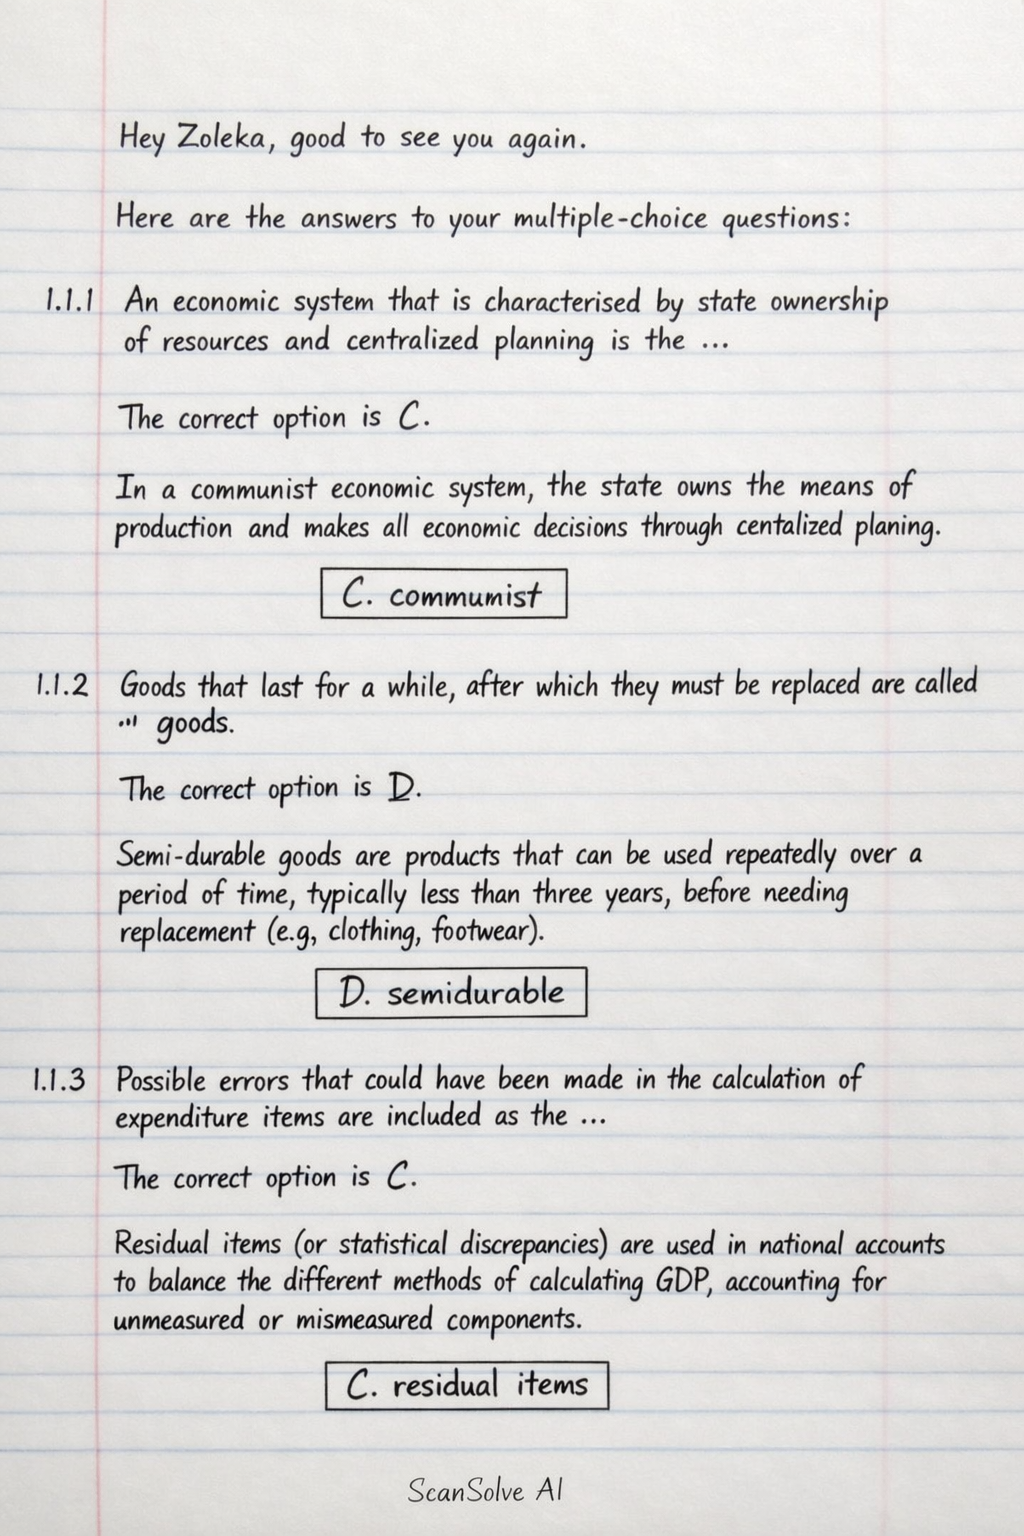 Hey Zoleka, good to see you again.
Here are the answers to your multiple-choice questions:
1.1.1 An economic system that is characterised by state ownership
of resources and centralized planning is the ...
The correct option is C.
In a communist economic system, the state owns the means of
production and makes all economic decisions through centalized planing.
C. commumist
1.1.2 Goods that last for a while, after which they must be replaced are called
... goods.
The correct option is D.
Semi-durable goods are products that can be used repeatedly over a
period of time, typically less than three years, before needing
replacement (e.g, clothing, footwear).
D. semidurable
1.1.3 Possible errors that could have been made in the calculation of
expenditure items are included as the ...
The correct option is C.
Residual items (or statistical discrepancies) are used in national accounts
to balance the different methods of calculating GDP, accounting for
unmeasured or mismeasured components.
C. residual items
ScanSolve AI